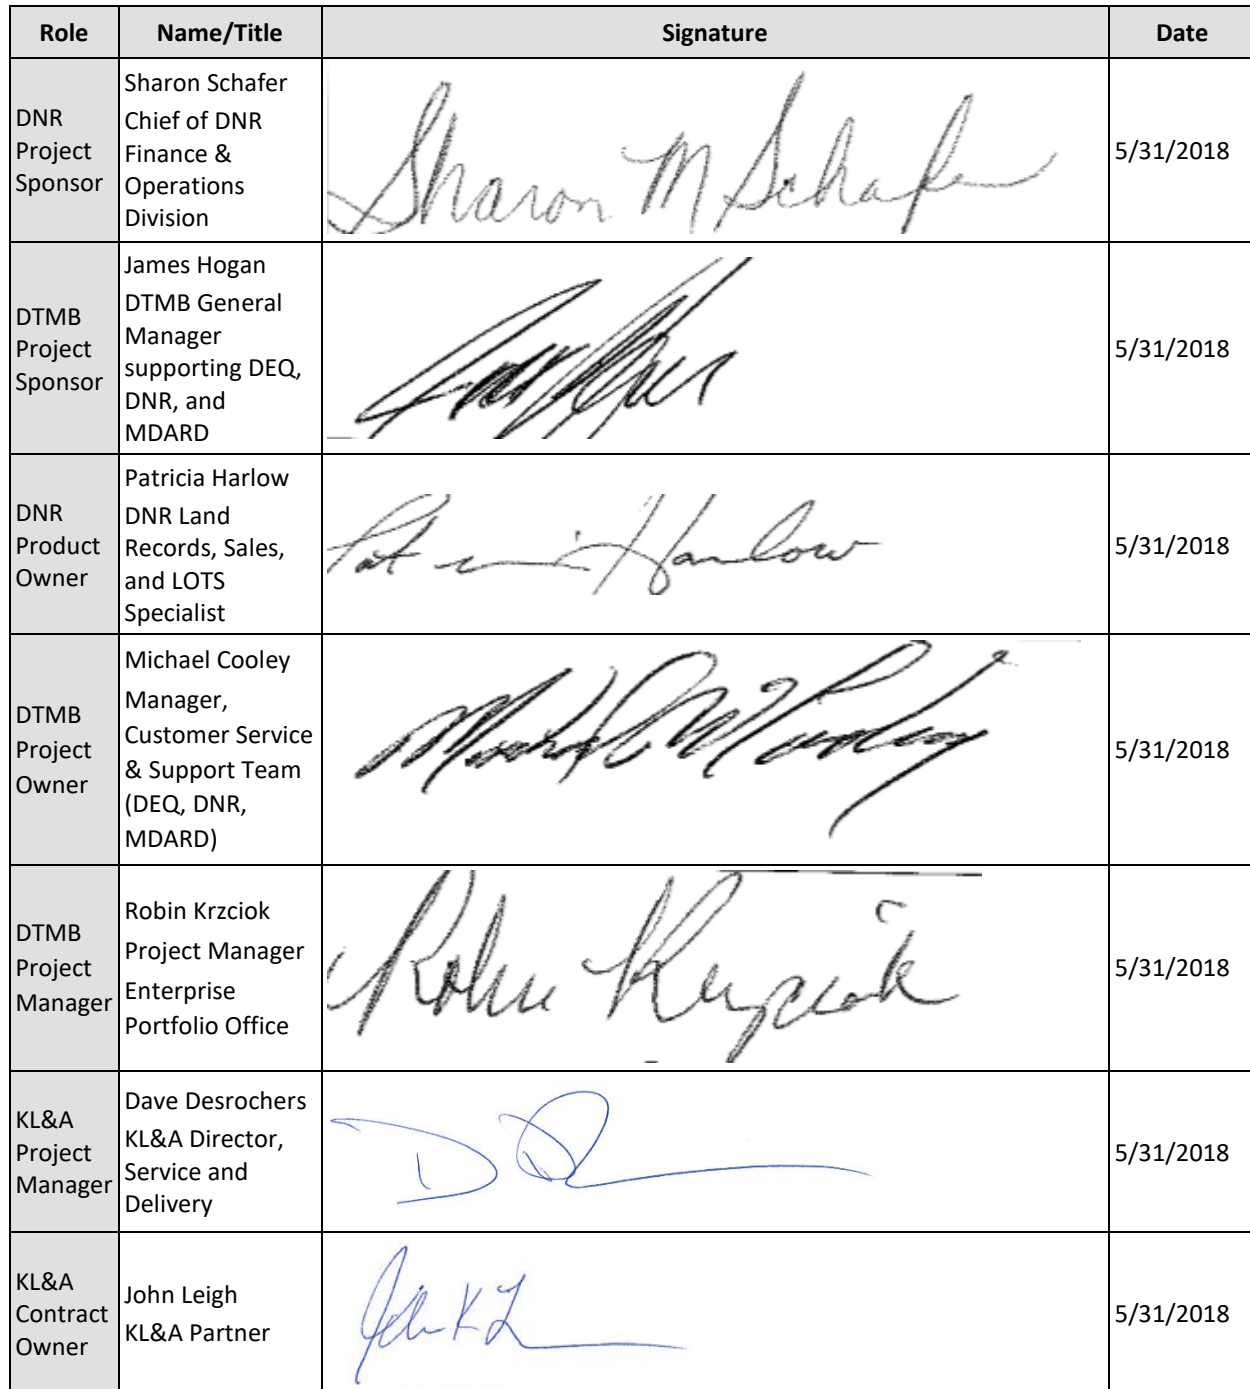 Role Name/Title Signature Date
DNR
Project
Sponsor
Sharon Schafer
Chief of DNR
Finance &
Operations
Division
Sharon M Schafer
5/31/2018
DTMB
Project
Sponsor
James Hogan
DTMB General
Manager
supporting DEQ,
DNR, and
MDARD
5/31/2018
DNR
Product
Owner
Patricia Harlow
DNR Land
Records, Sales,
and LOTS
Specialist
Patricia Harlow
5/31/2018
DTMB
Project
Owner
Michael Cooley
Manager,
Customer Service
& Support Team
(DEQ, DNR,
MDARD)
5/31/2018
DTMB
Project
Manager
Robin Krzciok
Project Manager
Enterprise
Portfolio Office
Robin Krzciok
5/31/2018
KL&A
Project
Manager
Dave Desrochers
KL&A Director,
Service and
Delivery
5/31/2018
KL&A
Contract
Owner
John Leigh
KL&A Partner
John K L
5/31/2018